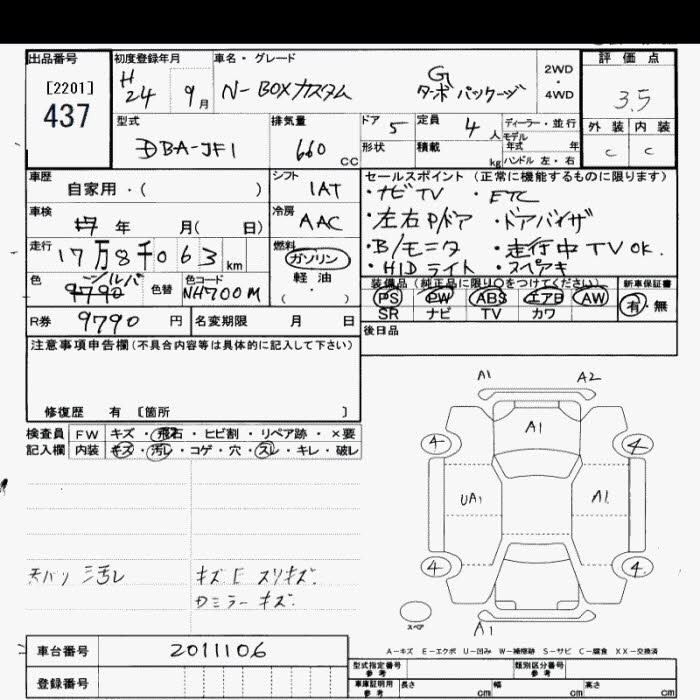 出品番号
[2201]
437
初度登録年月
H
24 9月
車名・グレード
N-BOXカスタム
G
ターボパッケージ
2WD
・
4WD
評価点
3.5
外装 内装
C C
型式
DBA-JF1
排気量
660 CC
ドア 5
形状
定員 4人
積載 kg
ディーラー・並行
モデル
年式 年
ハンドル 左・右
車歴
自家用・( )
シフト
1AT
車検
年 月( 日)
冷房
AAC
走行
17万8千063 km
燃料
ガソリン
軽油
( ・ )
色
シルバ
9790
色替
色コード
NH700M
R券 9790 円
名変期限 月 日
セールスポイント (正常に機能するものに限ります)
・ナビTV ・ETC
・左右P/ドア ・ドアバイザ
・B/モニタ ・走行中TV OK.
・HIDライト ・スペアキ
装備品(純正品に限り○をつけてください)
PS PW ABS エアB AW
SR ナビ TV カワ
新車保証書
有・無
後日品
注意事項申告欄(不具合内容等は具体的に記入して下さい)
修復歴 有 [箇所 ]
検査員 FW キズ・飛石・ヒビ割・リペア跡・×要
記入欄 内装 キズ・汚レ・コゲ・穴・スレ・キレ・破レ
天バリ 汚レ
キズ E スリキズ.
Wミラー キズ.
A1 A2
A1
4 4
UA1 A1
4 4
スペア
A1
A-キズ E-エクボ U-凹み W-補修跡 S-サビ C-腐食 XX-交換済
車台番号 2011106
登録番号
型式指定番号
参考
類別区分番号
参考
車庫証明用
参考
長さ cm 幅 cm 高さ cm